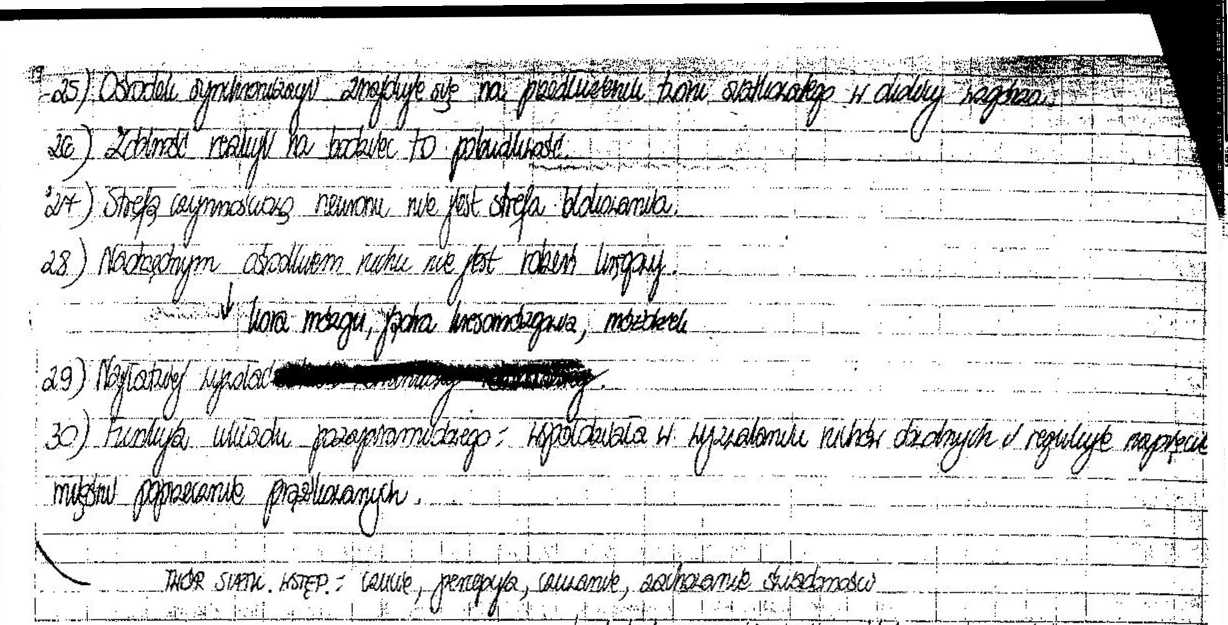 25) Ośrodek synchronizacji znajduje się na przedłużeniu tworu siatkowatego w okolicy wzgórza.
26) Zdolność reakcji na bodziec to pobudliwość.
27) Strefą czynnościową neuronu nie jest strefa blokowania.
28) Nadrzędnym ośrodkiem ruchu nie jest rdzeń kręgowy.
↓ kora mózgu, jądra kresomózgowia, móżdżek
29) Najłatwiej wywołać
30) Funkcja układu pozapiramidowego: współdziała w wyzwalaniu ruchów dowolnych i reguluje napięcie
mięśni poprzecznie prążkowanych.
TWÓR SIATK. WSTĘP.: czucie, percepcja, czuwanie, zachowanie świadomości